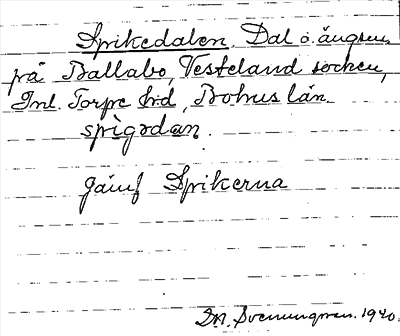 Spikedalen. Dal o. ängsm.
på Ballabo, Vesteland socken,
Inl. Torpe hd, Bohus län.
spìgədan.
Jämf Spikerna
1920.